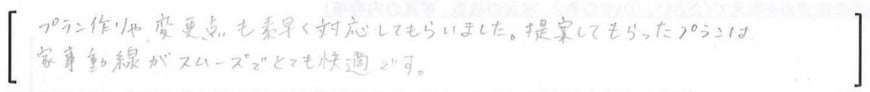 プラン作りや、変更点も素早く対応してもらいました。提案してもらったプランは
家事動線がスムーズでとても快適です。